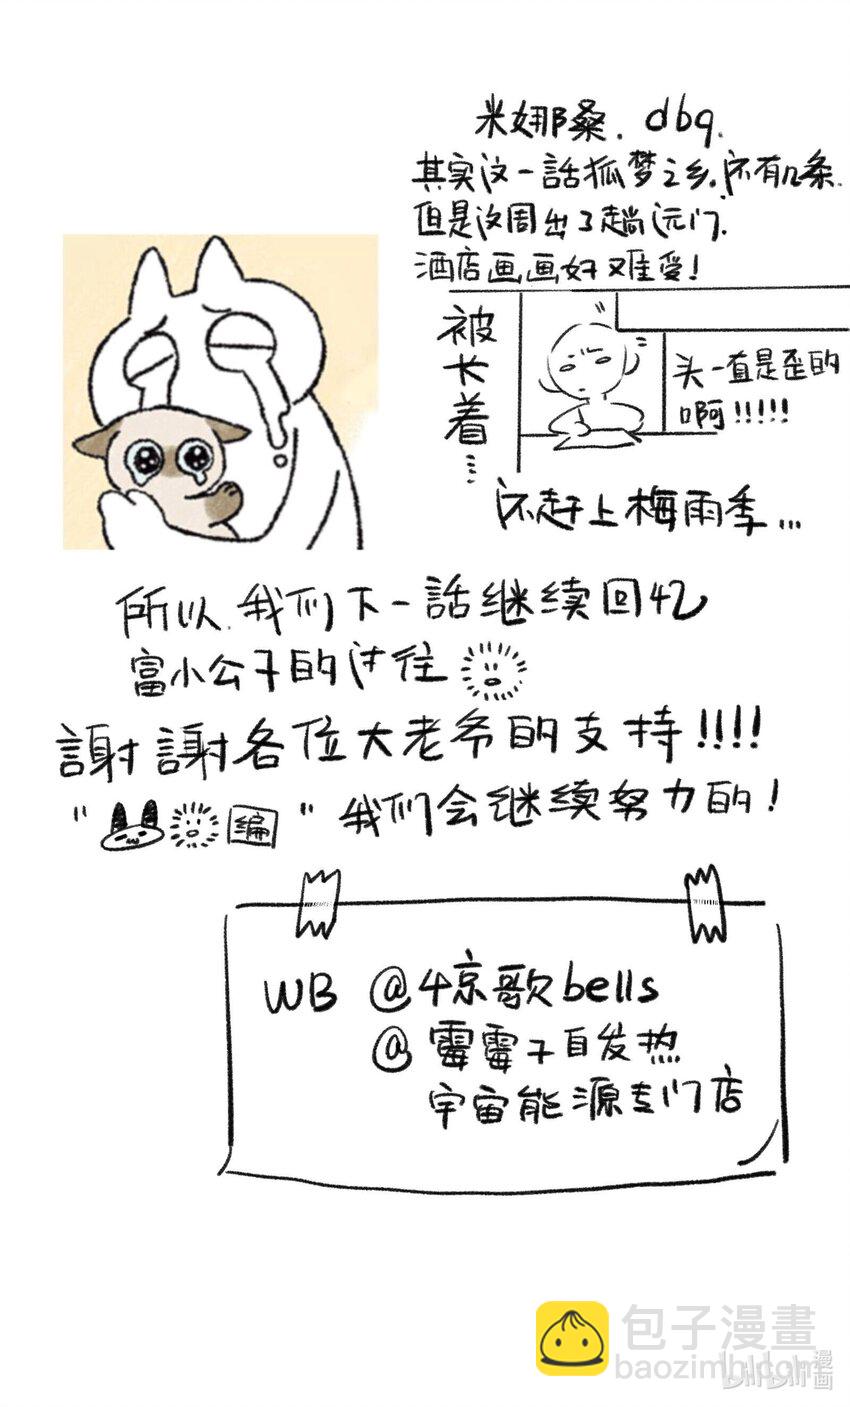 米娜桑. dbq.
其实这一話狐梦之乡,还有几条.
但是这周出了趟远门.
酒店画画好难受!
被长着...
头一直是歪的
啊!!!!!
还赶上梅雨季...
所以.我们下一話继续回忆
富小公子的过往
謝謝各位大老爷的支持!!!!
" 编 " 我们会继续努力的!
WB @4京歌bells
@霉霉子自发热
宇宙能源专门店
包子漫畫
baozimh.com
bilibili
漫画